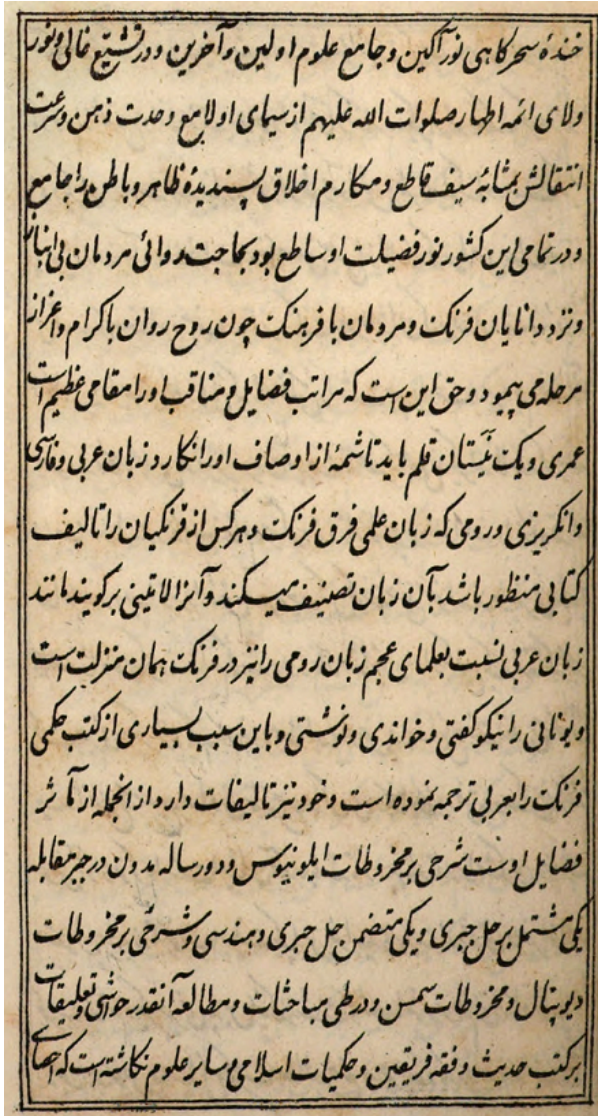 خندهٔ سحرکاهی نور آکین و جامع علوم اولین و آخرین و در تشیّع غالی و نور
ولای ائمه اطهار صلوات الله علیهم از سیمای او لامع وحدت ذهن و سرعت
انتقالش بمثابهٔ سیف قاطع و مکارم اخلاق پسندیدهٔ ظاهر و باطن را جامع
و در تمامی این کشور نور فضیلت او ساطع بود بحاجت روائی مردمان بی انباز
و نزد دانایان فرنک و مردمان با فرهنک چون روح روان باکرام و اعزاز
مرحله می پیمود و حق این است که مراتب فضایل و مناقب او را مقامی عظیم است
عمری و یک نیستان قلم باید تا شمهٔ از اوصاف او را نکارد زبان عربی و فارسی
و انکریزی و رومی که زبان علمی فرق فرنک و هر کس از فرنکیان را تالیف
کتابی منظور باشد بآن زبان تصنیف میکند و آنرا لاتینی برکویند مانند
زبان عربی نسبت بعلمای عجم زبان رومی را نیز در فرنک همان منزلت است
و یونانی را نیکو کفتی و خواندی و نوشتی و باین سبب بسیاری از کتب حکمی
فرنک را بعربی ترجمه نموده است و خود نیز تالیفات دارد از انجمله از مآثر
فضایل اوست شرحی بر مخروطات ابلونیوس و دو رساله مدون در جبر مقابله
یکی مشتمل بر حل جبری و یکی متضمن حل جبری و هندسی و شرحی بر مخروطات
دیوپتال و مخروطات سمسن و در طی مباحثات و مطالعه آنقدر حواشی و تعلیقات
بر کتب حدیث و فقه فریقین و حکمیات اسلامی و سایر علوم نکاشته است که احصای